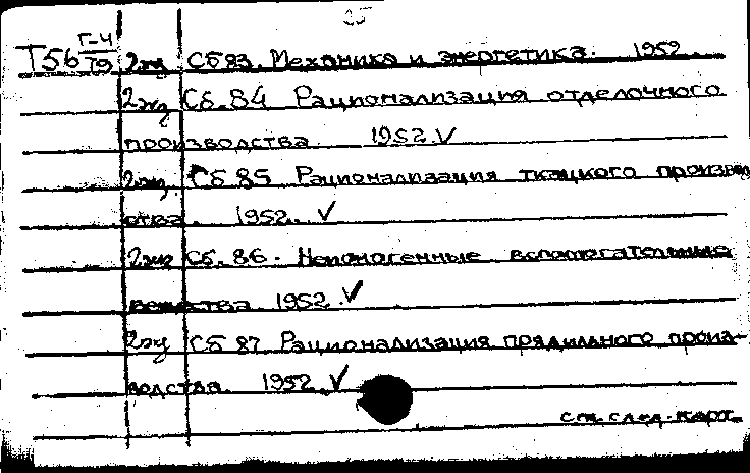 Т56 Г-4/79 2жд Сб 83. Механика и энергетика. 1952.
Сб. 84 Рационализация отделочного
производства 1952. V
Сб 85 Рационализация ткацкого произвд
ства. 1952. V
Сб. 86. Непоногенные вспомогательные
вещества 1952. V
Сб 87. Рационализация прядильного произ-
водства. 1952. V
см. след. карт.